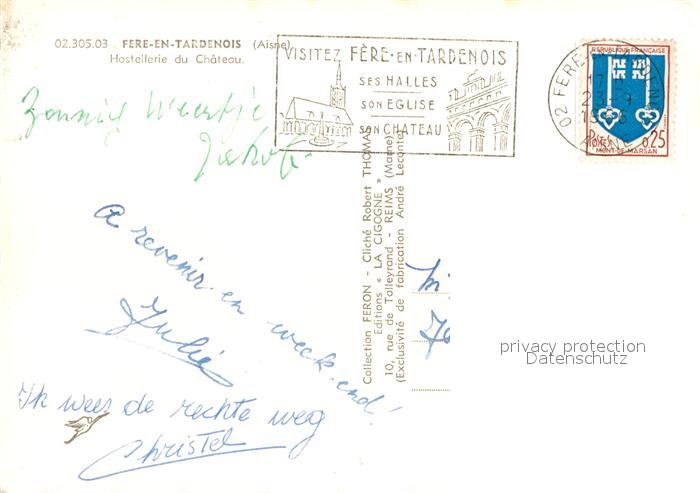 02.305.03 . FERE-EN-TARDENOIS (Aisne)
Hostellerie du Château.
VISITEZ FÈRE-EN-TARDENOIS
SES HALLES
SON EGLISE
SON CHATEAU
02 FERE-EN-TARDENOIS
AISNE
REPUBLIQUE FRANÇAISE
POSTES 0,25
MONT-DE-MARSAN
Zonnig Weertje
A revenir en week-end!
Julie
Ik wees de rechte weg
Christel
Collection FERON - Cliché Robert THOMAS
Editions « LA CIGOGNE »
10, rue de Talleyrand - REIMS (Marne)
(Exclusivité de fabrication André Leconte)
privacy protection
Datenschutz